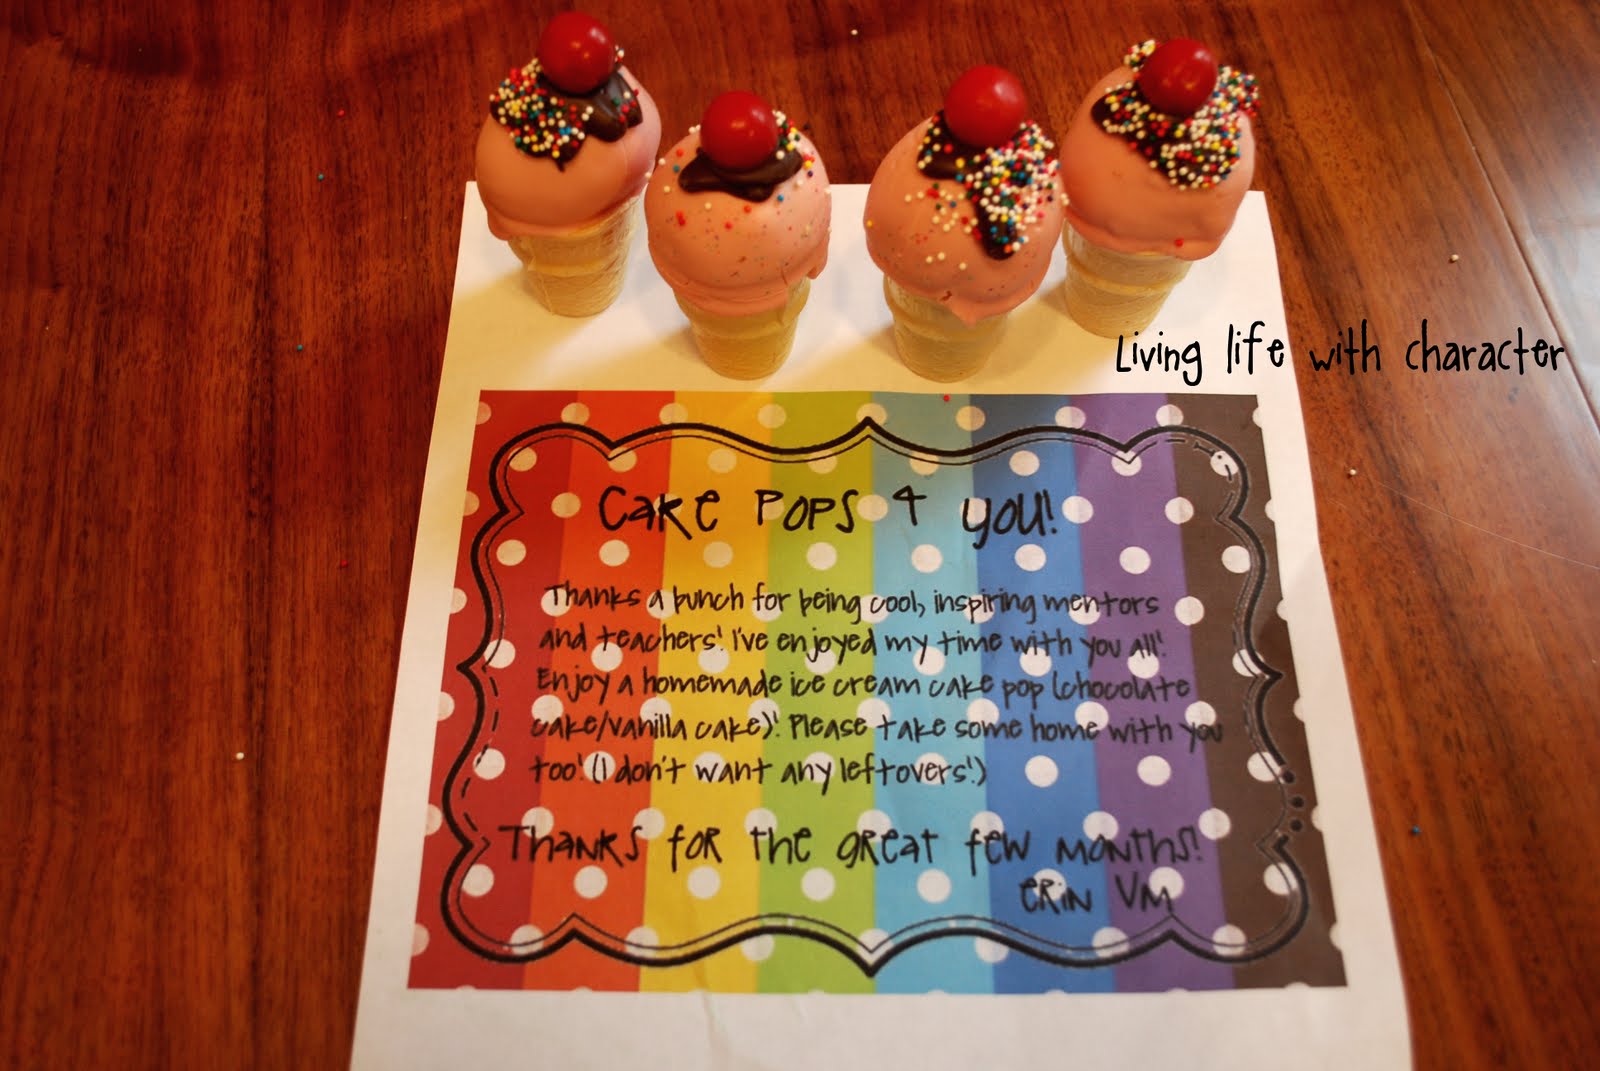 Living life with character
Cake Pops 4 you!
Thanks a bunch for being cool, inspiring mentors
and teachers! I've enjoyed my time with you all!
Enjoy a homemade ice cream cake pop (chocolate
cake/vanilla cake)! Please take some home with you
too! (I don't want any leftovers!)
Thanks for the great few months!
Erin VM